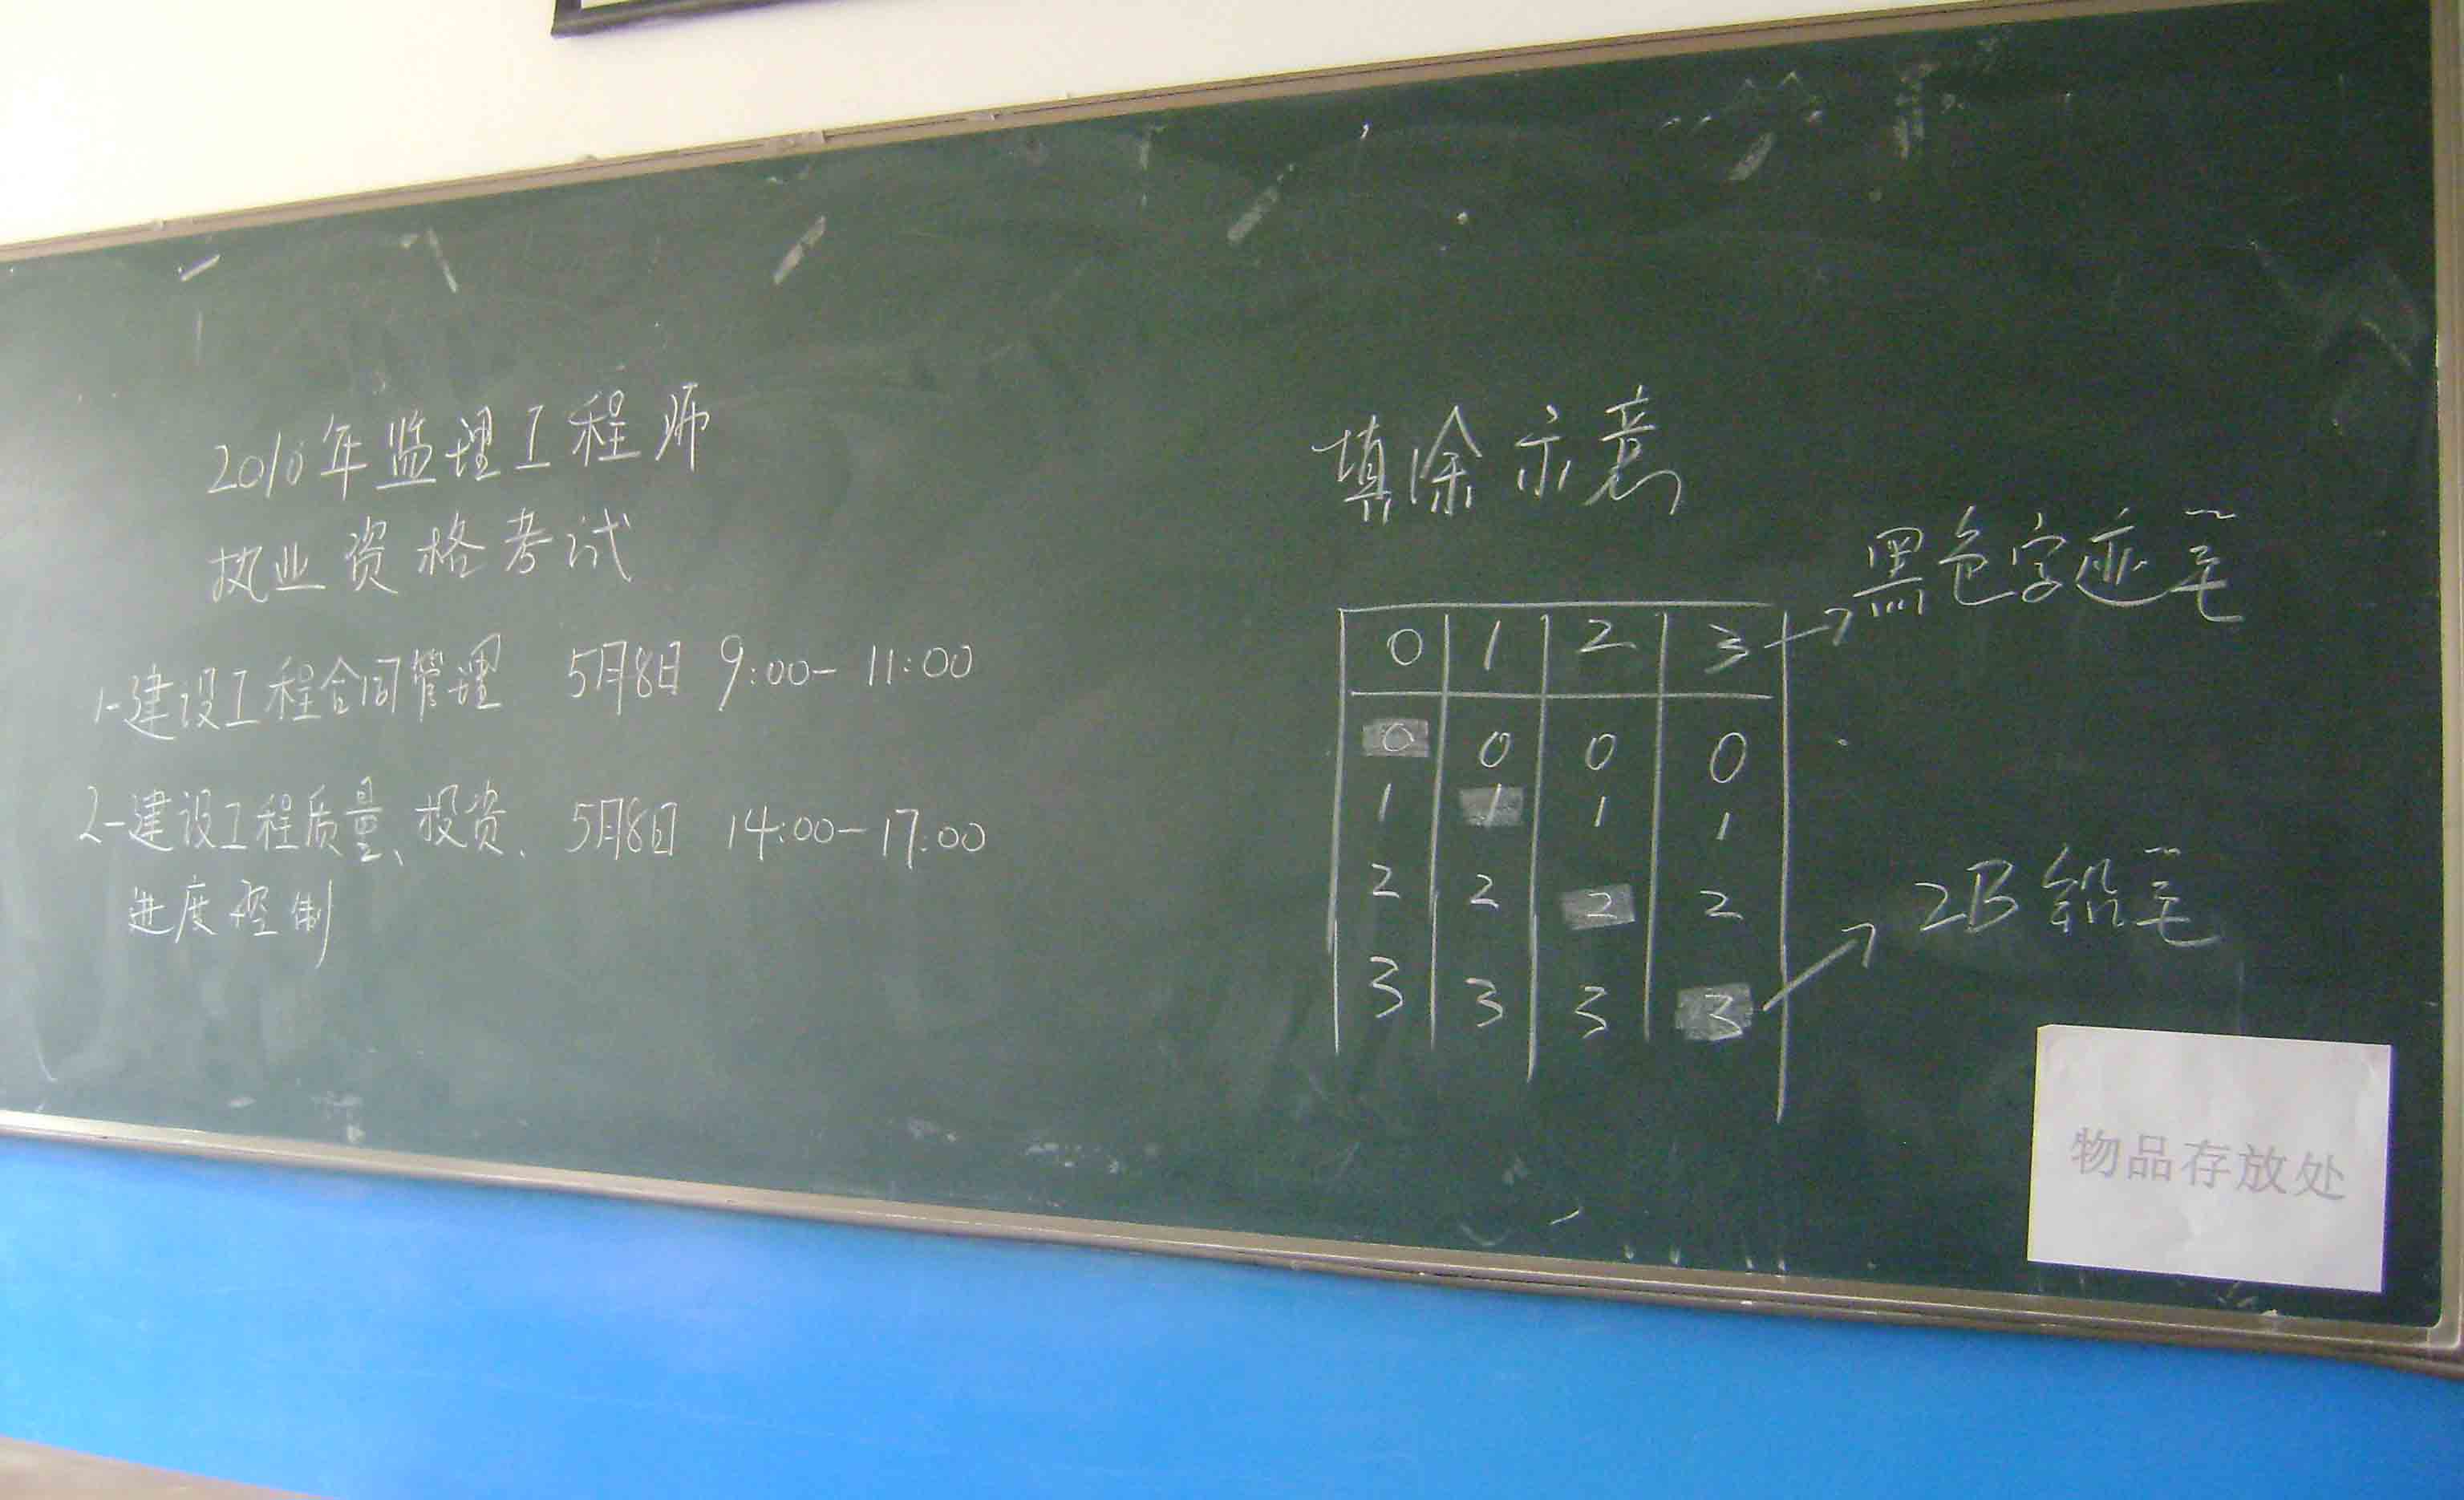 2010年监理工程师
执业资格考试
1-建设工程合同管理 5月8日 9:00-11:00
2-建设工程质量、投资、 5月8日 14:00-17:00
进度控制
填涂示意
0 1 2 3 → 黑色字迹笔
0 0 0 0
1 1 1 1
2 2 2 2
3 3 3 3 → 2B铅笔
物品存放处